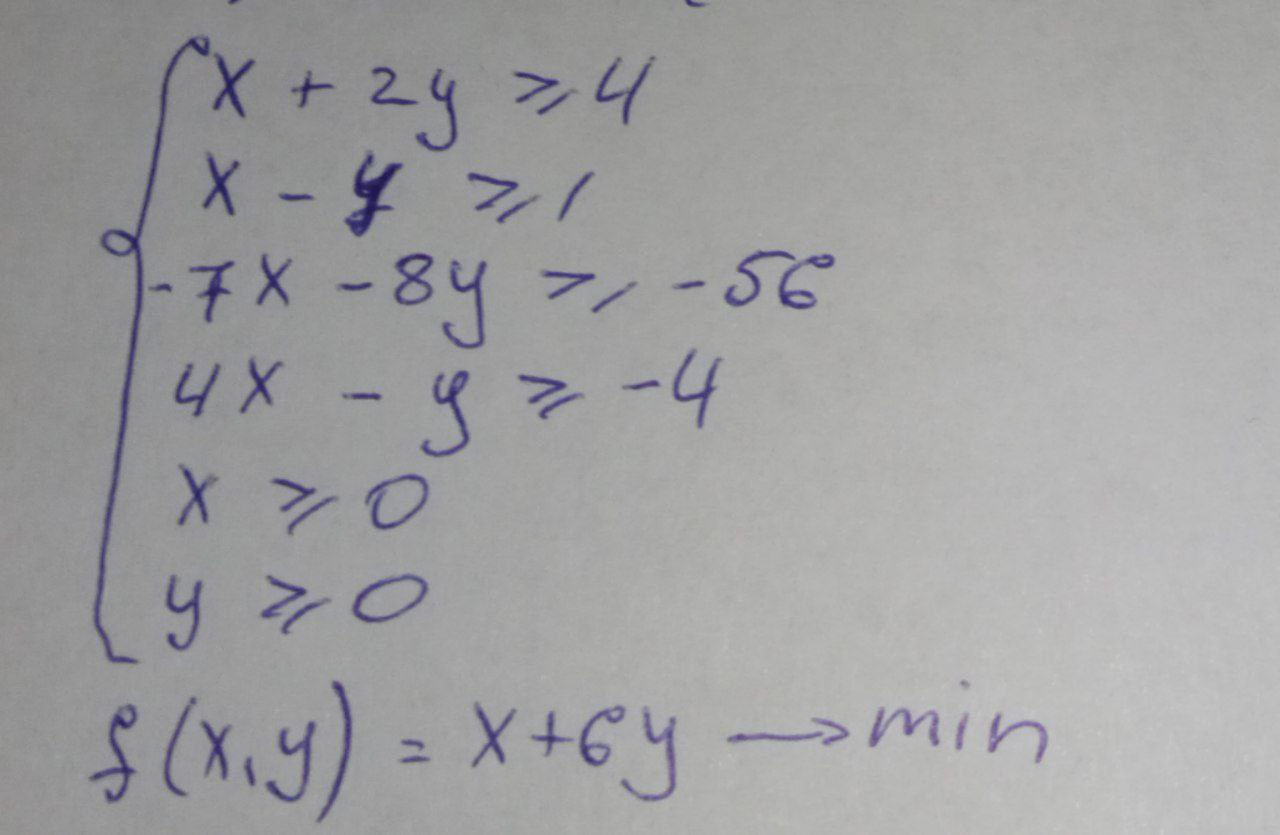 x + 2y ⩾ 4
x - y ⩾ 1
-7x - 8y ⩾ -56
4x - y ⩾ -4
x ⩾ 0
y ⩾ 0
f(x,y) = x+6y → min